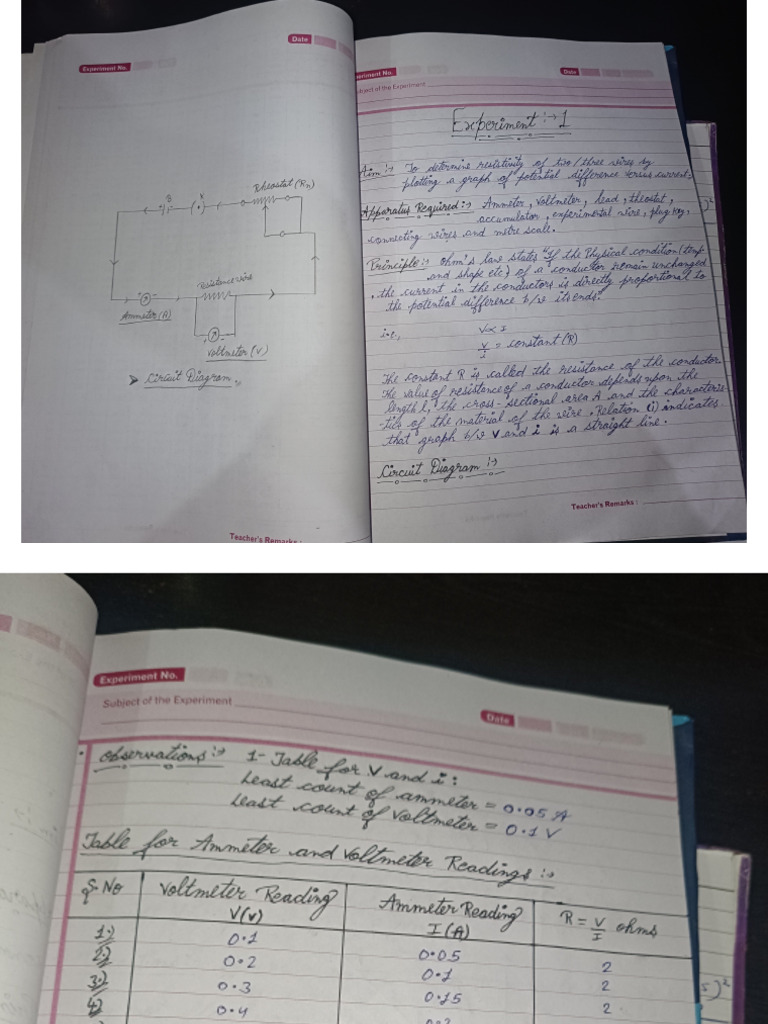 Date
Experiment No.
Rheostat (Rn)
B
K
resistance wire
Ammeter (A)
Voltmeter (V)
➤ Circuit Diagram :-
Teacher's Remarks :
Experiment No.
Date
Subject of the Experiment
Experiment :→ 1
Aim :→ To determine resistivity of two/three wires by
plotting a graph of potential difference versus current.
Apparatus Required :→ Ammeter, Voltmeter, lead, rheostat,
accumulator, experimental wire, plug key,
connecting wires and metre scale.
Principle :→ Ohm's law states "If the Physical condition (temp
and shape etc) of a conductor remain unchanged
, the current in the conductors is directly proportional to
the potential difference b/w its ends.
i.e, V∝ I
V/I = constant (R)
The constant R is called the resistance of the conductor
The value of resistance of a conductor depends upon the
length l, the cross-sectional area A and the characteris
-tics of the material of the wire. Relation (i) indicates
that graph b/w V and i is a straight line.
Circuit Diagram :→
Teacher's Remarks :
Experiment No.
Subject of the Experiment
Date
Observations :→ 1- Table for V and i :
Least count of ammeter = 0.05 A
Least count of Voltmeter = 0.1 V
Table for Ammeter and Voltmeter Readings :→
S.No Voltmeter Reading V(v) Ammeter Reading I (A) R = V/I ohms
1.) 0.1 0.05 2
2.) 0.2 0.1 2
3.) 0.3 0.15 2
4.) 0.4